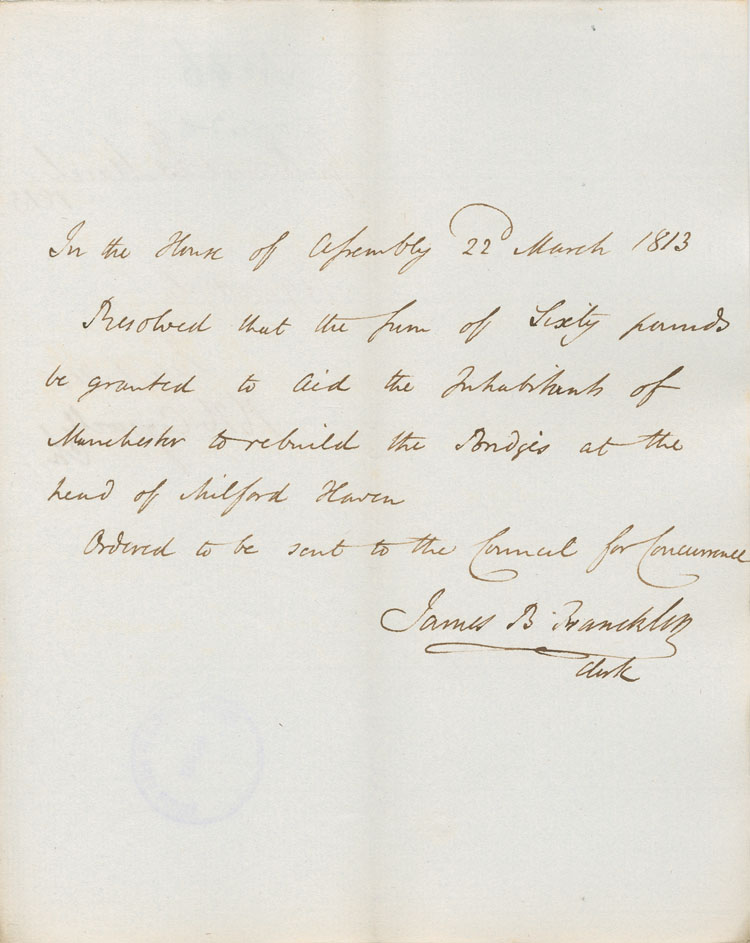 In the House of Assembly 22d March 1813
Resolved that the sum of Sixty pounds
be granted to aid the Inhabitants of
Manchester to rebuild the Bridges at the
head of Milford Haven
Ordered to be sent to the Council for Concurrence
James B. Francklin
Clerk